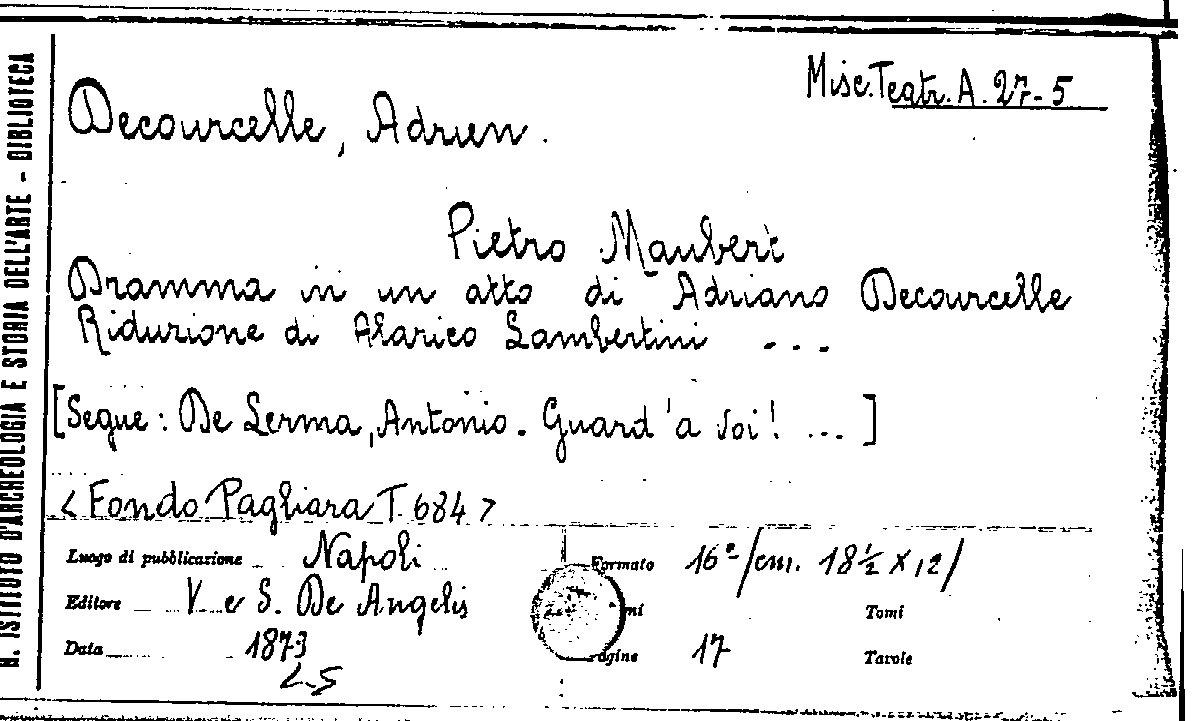 Misc. Teatr. A. 27-5
Decourcelle, Adrien.
Pietro Maubert
Dramma in un atto di Adriano Decourcelle
Riduzione di Alarico Lambertini ...
[Segue: De Lerma, Antonio. Guard'a voi! ... ]
<Fondo Pagliara T. 684>
Luogo di pubblicazione Napoli
Formato 16° /cm. 18 ½ x 12/
Editore V. e S. De Angelis
Tomi
Data 1873
Pagine 17
Tavole
R. ISTITUTO D'ARCHEOLOGIA E STORIA DELL'ARTE - BIBLIOTECA